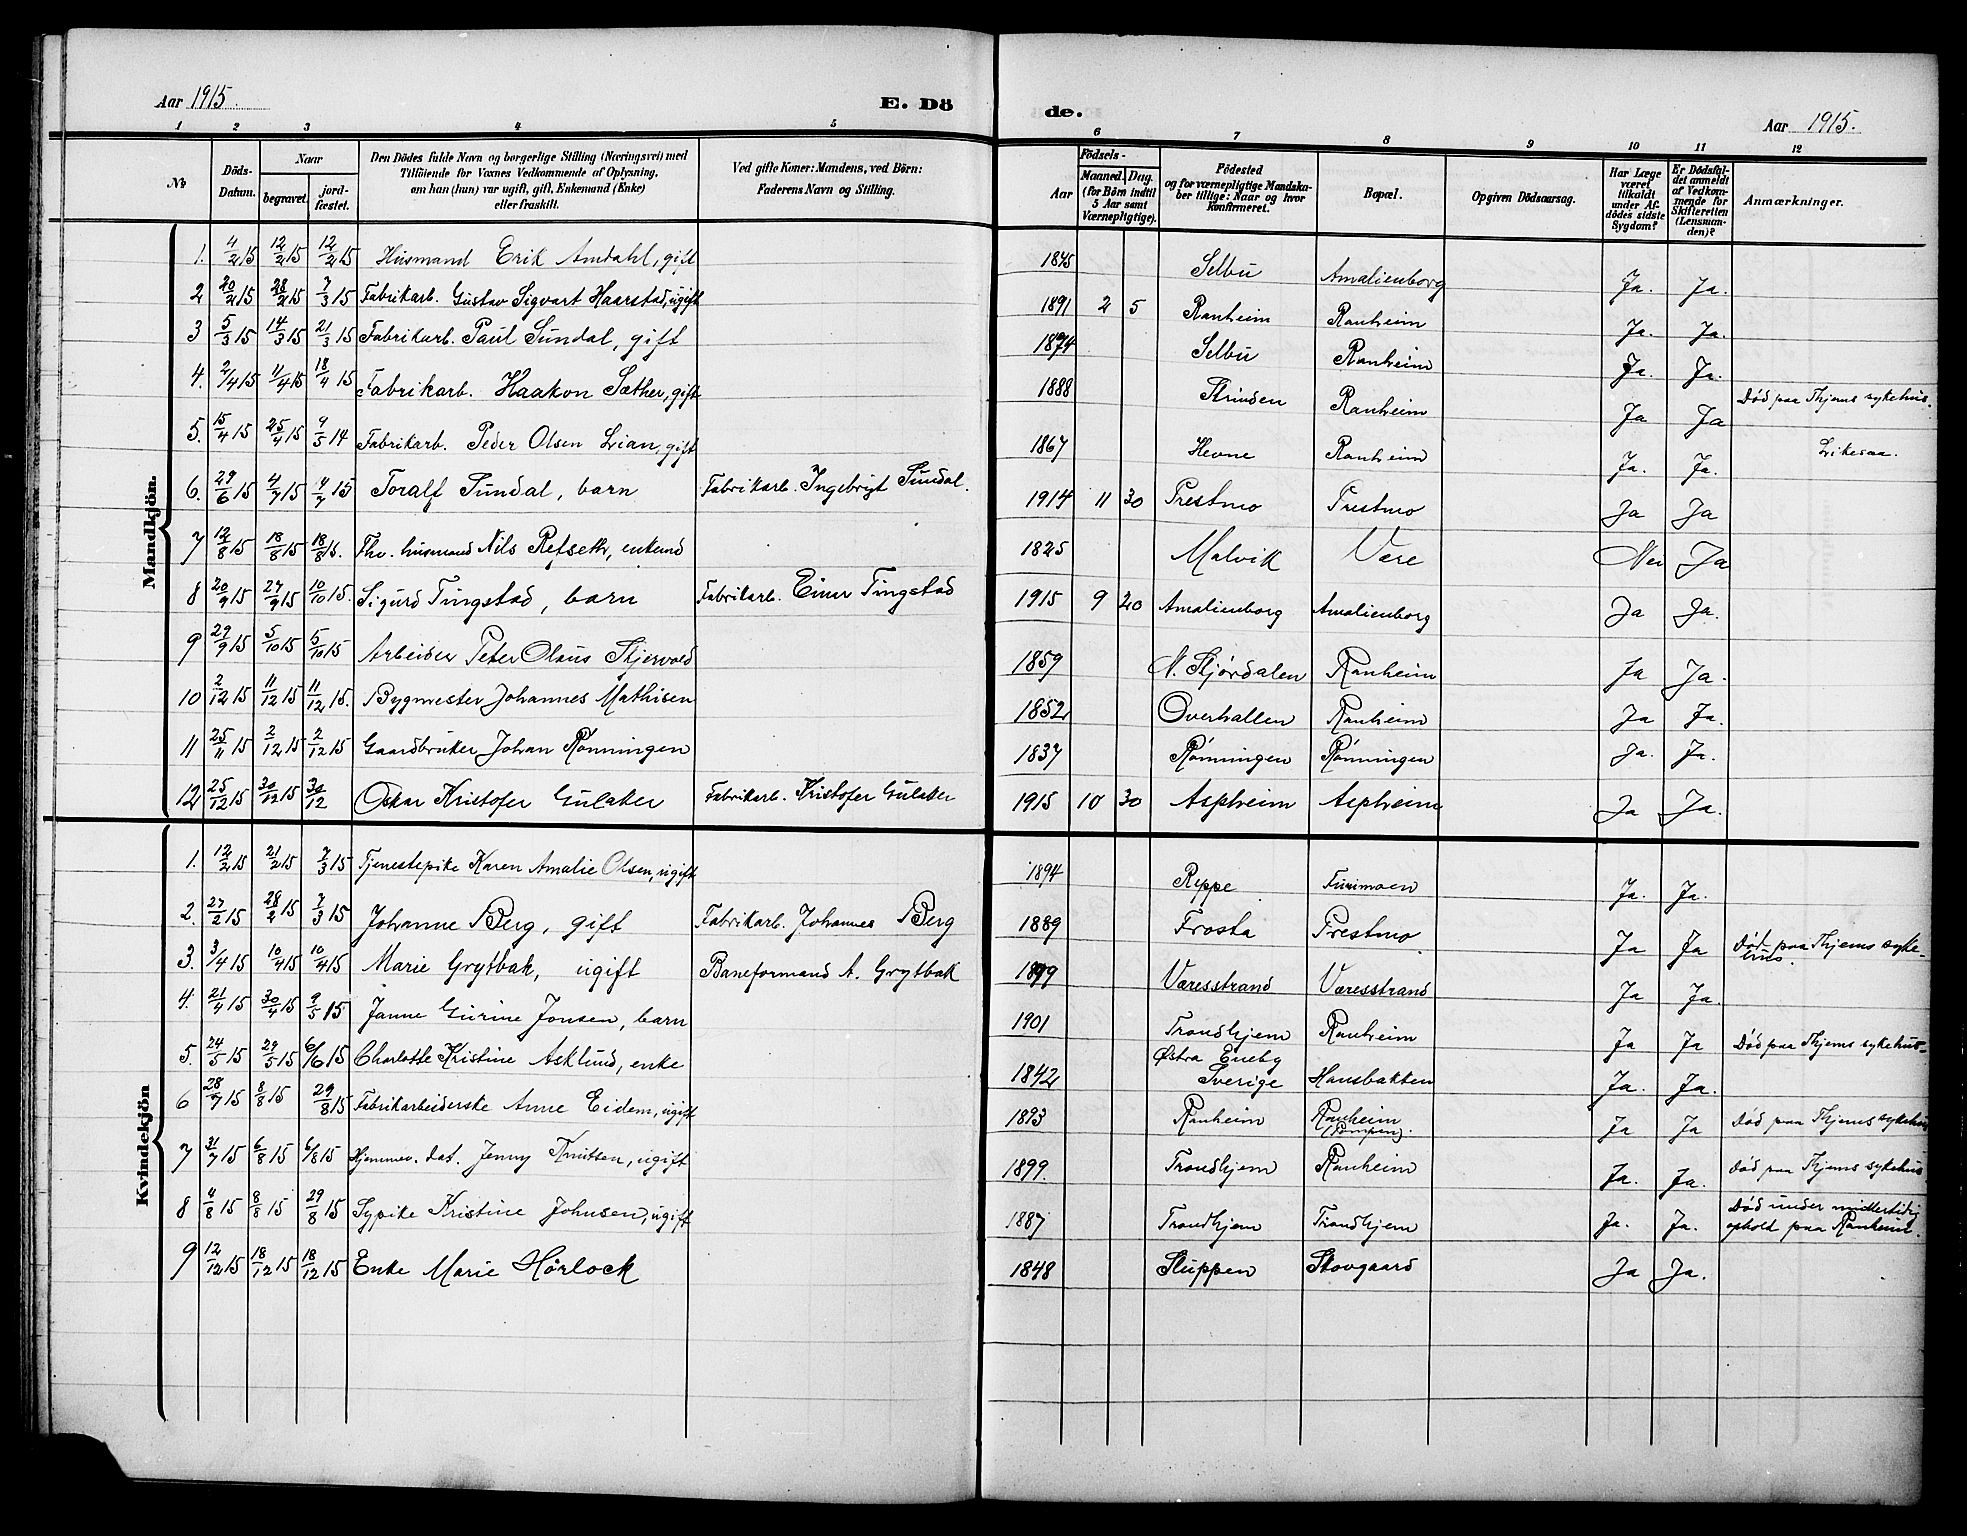 Aar 1915. E. Dö de. Aar 1915.
1 2 3 4 5 6 7 8 9 10 11 12
No Döds-Datum. Naar begravet. jord-fæstet. Den Dödes fulde Navn og borgerlige Stilling (Næringsvei) med Tilföiende for Voxnes Vedkommende af Oplysning, om han (hun) var ugift, gift, Enkemand (Enke) eller fraskilt. Ved gifte Koner: Mandens, ved Börn: Faderens Navn og Stilling. Födsels- Aar Maaned. Dag. (for Börn indtil 5 Aar samt Værnepligtige). Födested og for værnepligtige Mandskaber tillige: Naar og hvor Konfirmeret. Bopæl. Opgiven Dödsaarsag. Har Læge været tilkaldt under Afdödes sidste Sygdom? Er Dödsfaldet anmeldt af Vedkommende for Skifteretten (Lensmanden)? Anmærkninger.
Mandkjön.
1. 4/2 15 12/2 15 12/2 15 Husmand Erik Amdahl, gift 1845 Selbu Amalienborg Ja. Ja.
2 20/2 15 28/2 15 7/3 15 Fabrikarb. Gustav Sigvart Haarstad, ugift 1891 2 5 Ranheim Ranheim Ja. Ja.
3 5/3 15 14/3 15 21/3 15 Fabrikarb. Paul Sundal, gift 1874 Selbu Ranheim Ja. Ja.
4. 2/4 15 11/4 15 18/4 15 Fabrikarb. Haakon Sæther, gift 1888 Strinden Ranheim Ja Ja Död paa Thjems sykehus.
5. 15/4 15 25/4 15 9/5 14 Fabrikarb. Peder Olsen Lian, gift 1867 Hevne Ranheim Ja. Ja. Likesaa.
6. 29/6 15 4/7 15 4/7 15 Toralf Sundal, barn Fabrikarb. Ingebrigt Sundal. 1914 11 30 Prestmo Prestmo Ja Ja
7 12/8 15 18/8 15 18/8 15. Fhv. husmand Nils Refseth, enkemd 1825 Malvik Være Nei Ja
8 20/9 15 27/9 15 10/10 15. Sigurd Tingstad, barn Fabrikarb. Einar Tingstad 1915 9 20 Amalienborg Amalienborg Ja Ja.
9 29/9 15 5/10 15 5/10 15 Arbeider Peter Olaus Skjervold 1859 N. Stjørdalen Ranheim Ja Ja.
10 2/12 15 11/12 15 11/12 15. Bygmester Johannes Mathisen 1852 Overhallen Ranheim Ja Ja.
11 25/11 15 2/12 15 2/12 15 Gaardbruker Johan Rønningen 1837 Rønningen Rønningen Ja. Ja.
12 25/12 15 30/12 15 30/12 Oskar Kristofer Gulaker Fabrikarb. Kristofer Gulaker 1915 10 30 Aspheim Aspheim Ja Ja.
Kvindekjön
1. 12/2 15 21/2 15 7/3 15 Tjenestepike Karen Amalie Olsen, ugift 1894 Reppe Furumoen Ja. Ja.
2. 27/2 15 28/2 15 7/3 15 Johanne Berg, gift Fabrikarb. Johannes Berg 1889 Frosta Prestmo Ja Ja Död paa Thjems sykehus.
3. 3/4 15 10/4 15 10/4 15 Marie Grytbak, ugift Baneformand A. Grytbak 1899 Væresstrand Væresstrand Ja Ja.
4. 21/4 15 30/4 15 9/5 15 Janne Gurine Jonsen, barn 1901 Trondhjem Ranheim Ja Ja Död paa Thjems sykehus
5. 24/5 15 29/5 15 6/6 15 Charlotte Kristine Asklund, enke 1842 Østra Eneby Sverige Hansbakken Ja. Ja.
6 28/7 15 8/8 15 29/8 15 Fabrikarbeiderske Anne Eidem, ugift 1893 Ranheim Ranheim Ja Ja Död paa Thjems sykehus
7 31/7 15 6/8 15 6/8 15 Hjemmev. dat. Jenny Knutsen, ugift 1899. Trondhjem Ranheim Ja. Ja. Död paa Thjems sykehus
8 4/8 15 8/8 15 29/8 15 Sypike Kristine Johnsen, ugift 1887 Trondhjem Trondhjem Ja. Ja. Död under midlertidig ophold paa Ranheim.
9 12/12 15 18/12 15 18/12 15 Enke Marie Hørlock 1848 Sluppen Skovgaard Ja Ja.